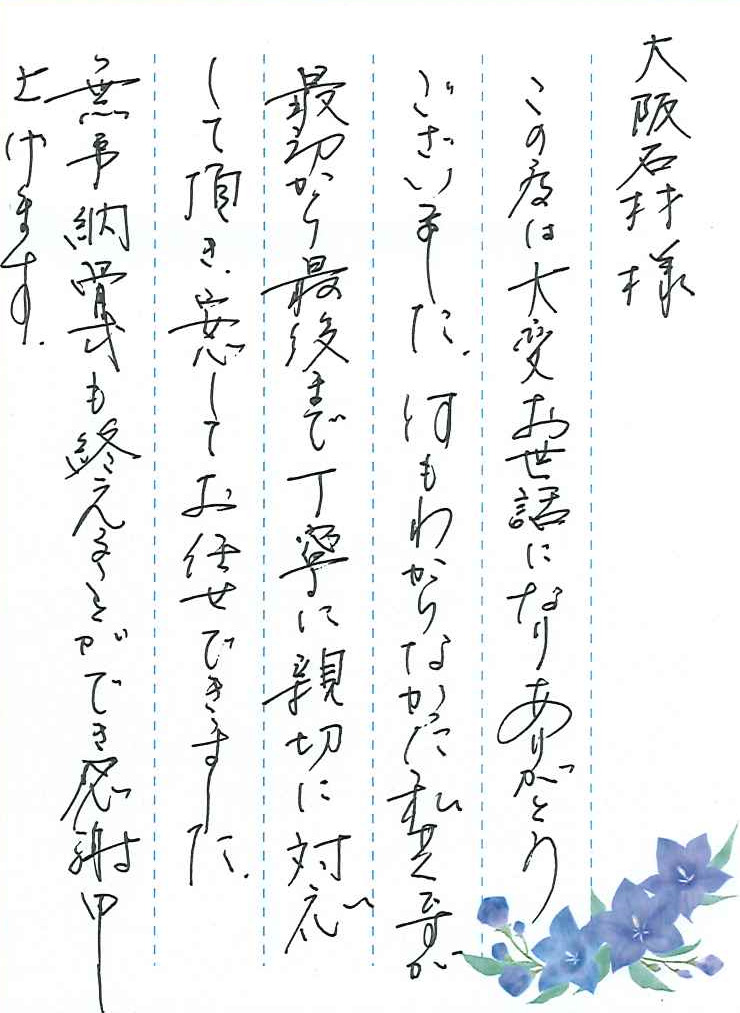 大阪石材様
この度は大変お世話になりありがとう
ございました。何もわからなかった私共ですが
最初から最後まで丁寧に親切に対応
して頂き、安心してお任せできました。
無事納骨式も終えることができ感謝申し
上げます。